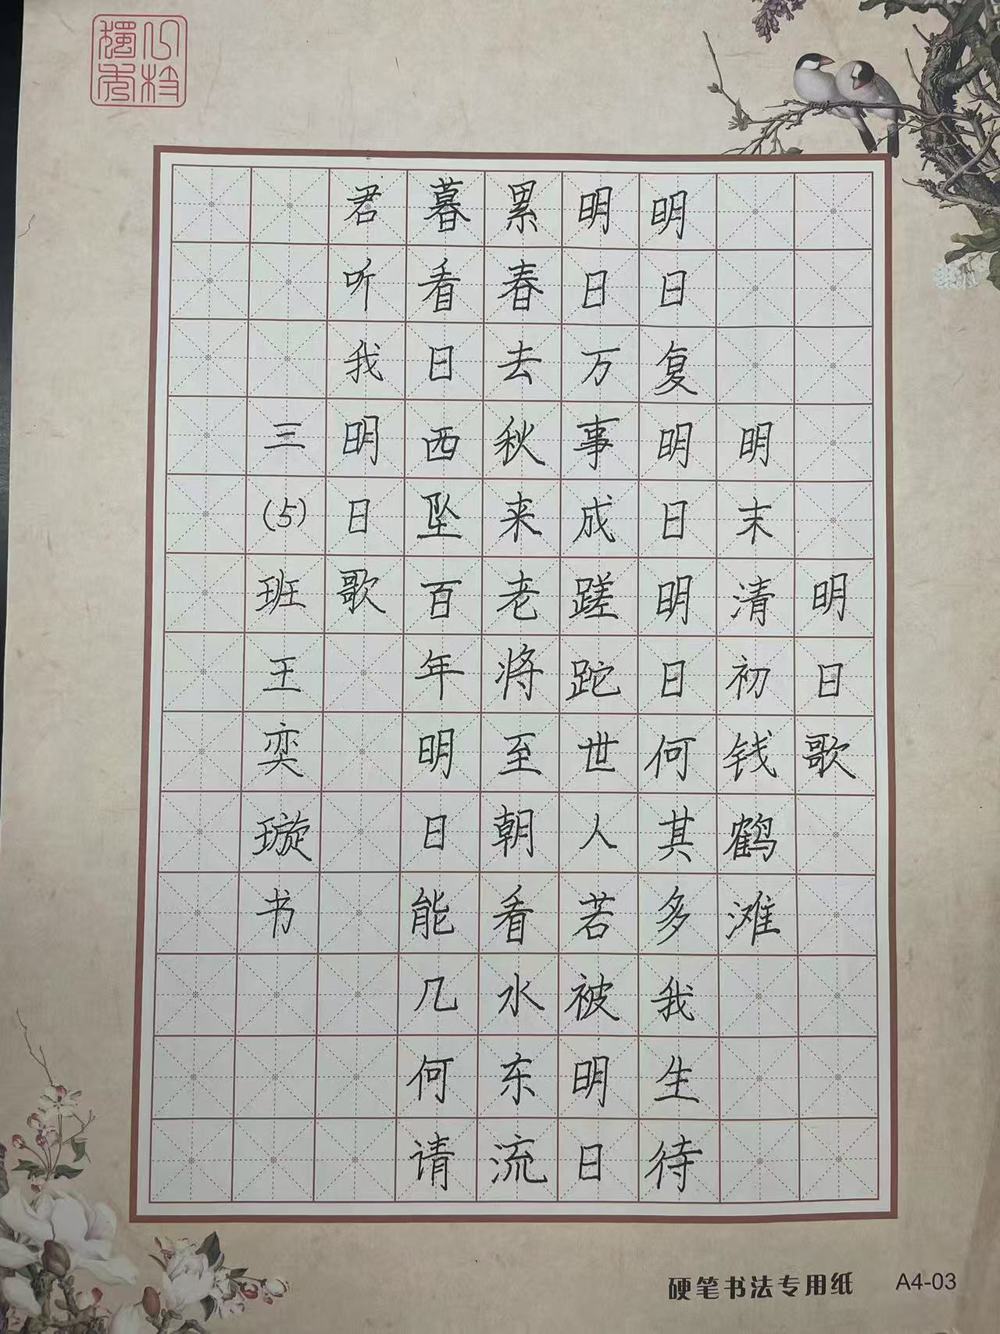 明日歌
明末清初钱鹤滩
明日复明日明日何其多我生待
明日万事成蹉跎世人若被明日
累春去秋来老将至朝看水东流
暮看日西坠百年明日能几何请
君听我明日歌
三(5)班王奕璇书
硬笔书法专用纸 A4-03